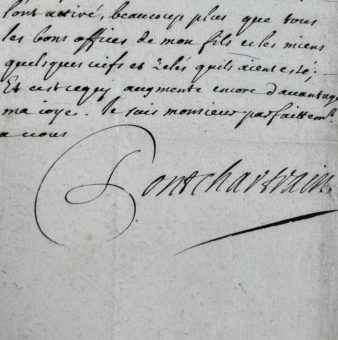 l'ont attiré, beaucoup plus que tous
les bons offices de mon fils et les miens
quelques vifs et zelés quils aient esté,
Et c'est ce qui augmente encore d'avantage
ma joye. Je suis monsieur parfaittemt.
a vous
Pontchartrain